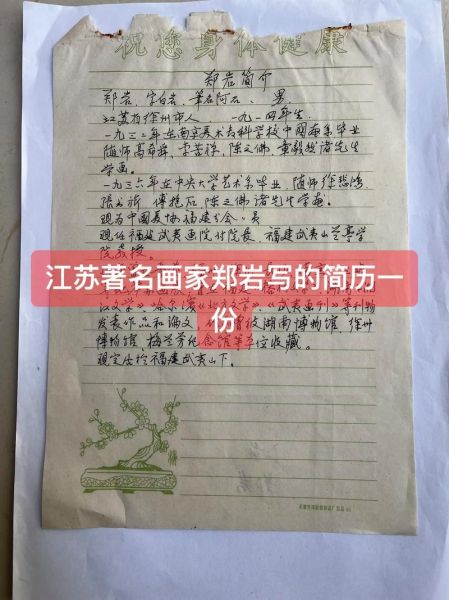 祝您身体健康
郑岩简介
郑岩,字白岩,笔名阿石、男,
江苏省徐州市人,一九一四年生,
一九三二年在南京美术专科学校中国画系毕业
随师高希舜、李苦禅、陈之佛、诸先生
学画。
一九三六年在中央大学艺术系毕业,随师徐悲鸿、
张书旂、傅抱石、陈之佛诸先生学画。
现为中国美协福建分会会员
现任福建武夷画院付院长、福建武夷山兰亭学
院教授。
江苏著名画家郑岩写的简历一
份
汉文学》哈尔滨《北方文学》、《武夷画刊》等刊物
发表作品和论文,被湖南博物馆、徐州
博物馆、梅兰芳纪念馆等单位收藏。
现定居于福建武夷山下。